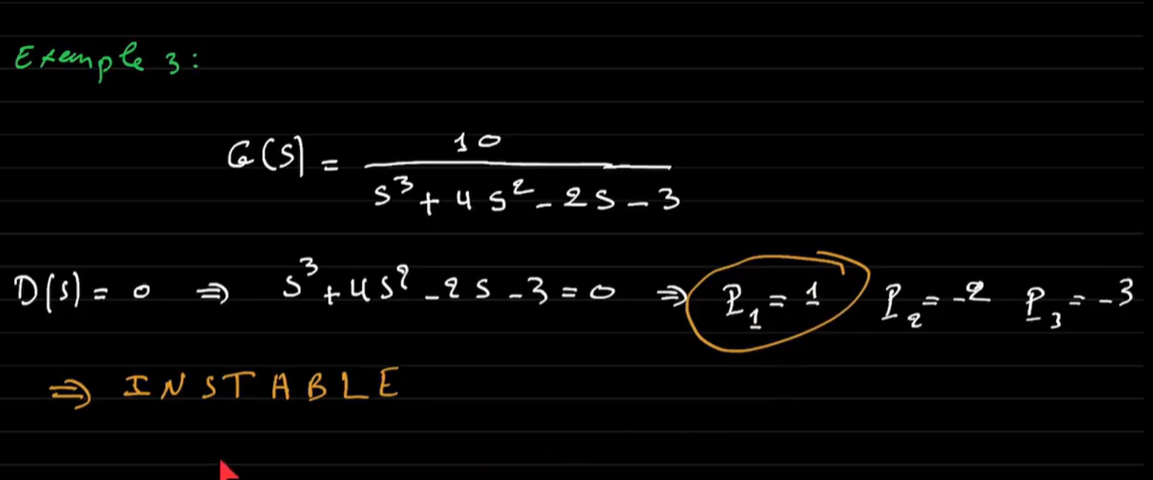 Example 3:
G(s) = 10 / (s³ + 4s² - 2s - 3)
D(s) = 0 ⇒ s³ + 4s² - 2s - 3 = 0 ⇒ P₁ = 1 P₂ = -2 P₃ = -3
⇒ INSTABLE